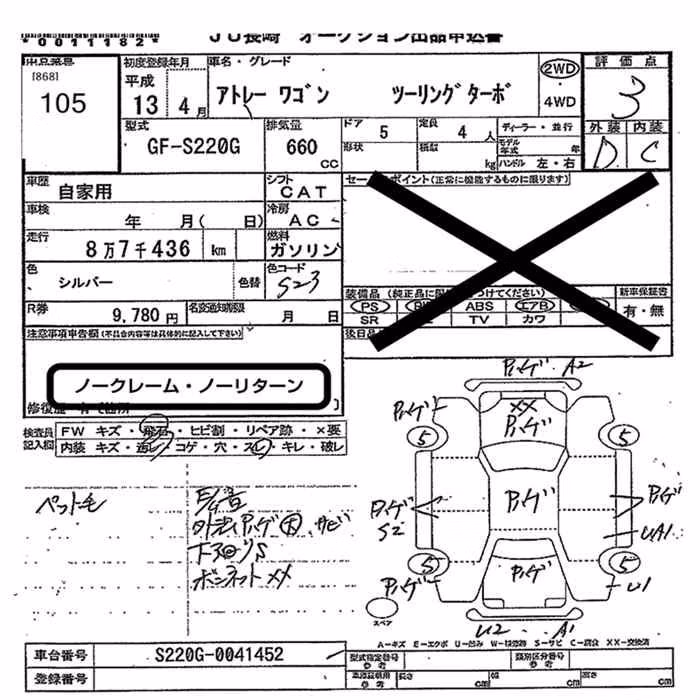 *0011182* JU長崎 オークション出品申込書
[868]
105
初度登録年月
平成
13 4月
車名・グレード
アトレー ワゴン ツーリングターボ
2WD
4WD
評価点
3
外装 内装
D C
型式
GF-S220G
排気量
660 CC
ドア 5 定員 4 人
形状 積載 kg
ディーラー・並行
モデル年式 年
ハンドル 左・右
車歴
自家用
シフト
CAT
セールスポイント(正常に機能するものに限ります)
車検
年 月( 日)
冷房
AC
走行
8万7千436 km
燃料
ガソリン
色
シルバー
色替
色コード
S23
装備品 (純正品に限り つけてください)
新車保証書
有・無
PS ABS エアB
SR TV カワ
R券
9,780円
名変通知期限
月 日
後日品
注意事項申告欄(不具合内容等は具体的に記入して下さい)
ノークレーム・ノーリターン
検査員記入欄
FW キズ・飛石・ヒビ割・リペア跡・×要
内装 キズ・汚レ・コゲ・穴・スレ・キレ・破レ
ペット毛
外装ハゲ大、サビ
下回りS
ボンネットXX
ハゲ・A2
ハゲ
XX
ハゲ
5
5
ハゲ
S2
ハゲ
ハゲ
UA1
5
5
ハゲ
ハゲ
U1
スペア
U2 A1
A-キズ E-エクボ U-凹み W-補修跡 S-サビ C-腐食 XX-交換済
車台番号
S220G-0041452
登録番号
型式指定番号
参考
類別区分番号
参考
長さ cm
幅 cm
高さ cm